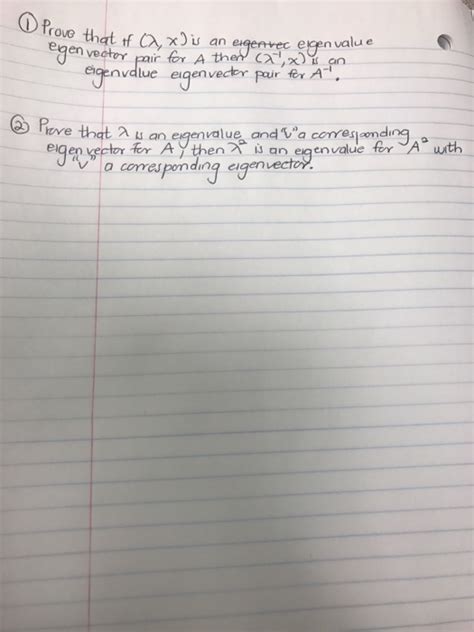 ① Prove that if (λ, x) is an eigenvec eigenvalue
eigenvector pair for A then (λ⁻¹, x) is an
eigenvalue eigenvector pair for A⁻¹.
② Prove that λ is an eigenvalue and "v" a corresponding
eigenvector for A, then λ² is an eigenvalue for A² with
"v" a corresponding eigenvector.